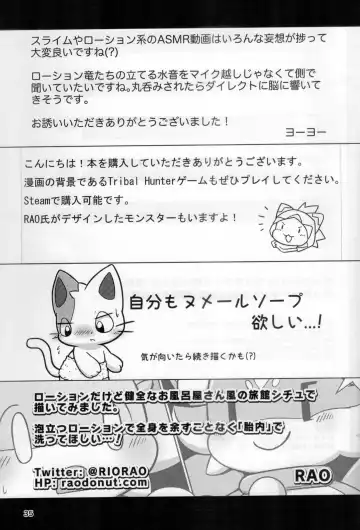 スライムやローション系のASMR動画はいろんな妄想が捗って
大変良いですね(?)
ローション竜たちの立てる水音をマイク越しじゃなくて側で
聞いていたいですね。丸呑みされたらダイレクトに脳に響いて
きそうです。
お誘いいただきありがとうございました！
ヨーヨー
こんにちは！本を購入していただきありがとうございます。
漫画の背景であるTribal Hunterゲームもぜひプレイしてください。
Steamで購入可能です。
RAO氏がデザインしたモンスターもいますよ！
自分もヌメールソープ
欲しい…！
気が向いたら続き描くかも(?)
ローションだけど健全なお風呂屋さん風の旅館シチュで
描いてみました。
泡立つローションで全身を余すことなく「胎内」で
洗ってほしい…！
Twitter: @RIORAO
HP: raodonut.com
RAO
35